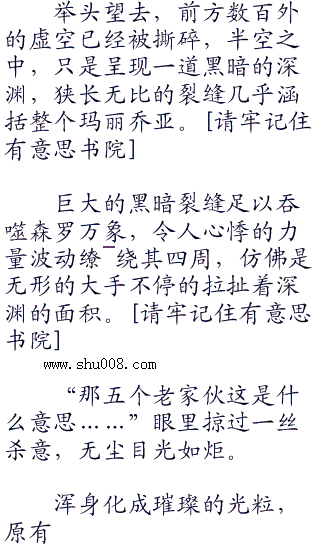 举头望去，前方数百外
的虚空已经被撕碎，半空之
中，只是呈现一道黑暗的深
渊，狭长无比的裂缝几乎涵
括整个玛丽乔亚。[请牢记住
有意思书院]
巨大的黑暗裂缝足以吞
噬森罗万象，令人心悸的力
量波动缭¯绕其四周，仿佛是
无形的大手不停的拉扯着深
渊的面积。[请牢记住有意思
书院]
www.shu008.com
“那五个老家伙这是什
么意思……”眼里掠过一丝
杀意，无尘目光如炬。
浑身化成璀璨的光粒，
原有